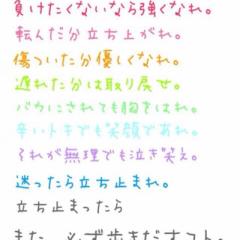 負けたくないなら強くなれ。
転んだ分立ち上がれ。
傷ついた分優しくなれ。
遅れた分は取り戻せ。
バカにされても胸をはれ。
辛いトキでも笑顔であれ。
それが無理でも泣き笑え。
迷ったら立ち止まれ。
立ち止まったら
また、必ず歩きだすコト。